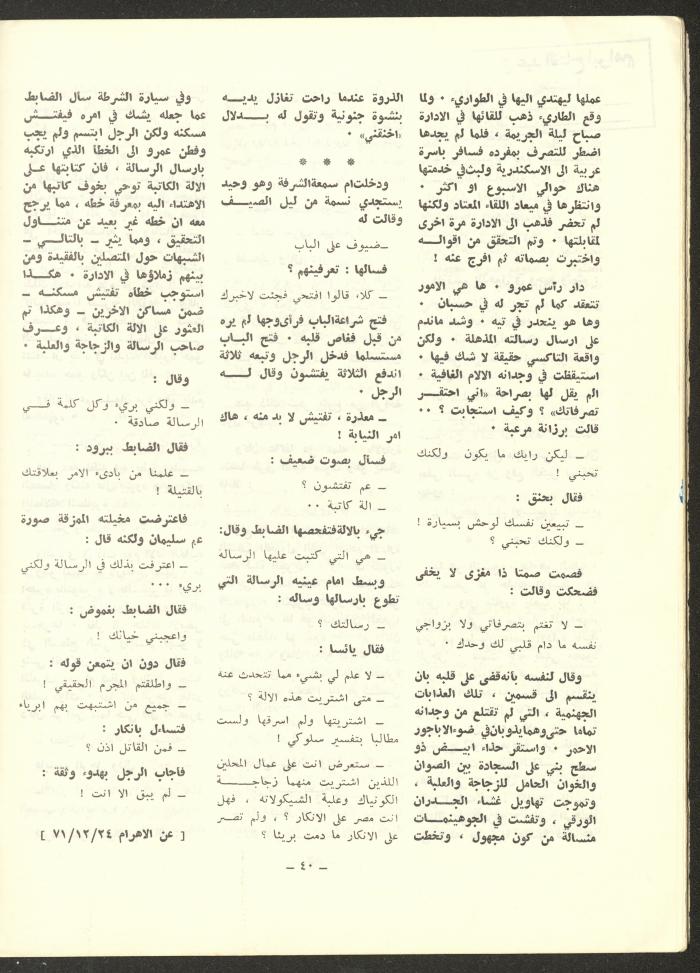 عملها ليهتدي اليها في الطواريء ٠ ولما
وقع الطاريء ذهب للقائها في الادارة
صباح ليلة الجريمة ، فلما لم يجدها
اضطر للتصرف بمفرده فسافر باسرة
عربية الى الاسكندرية ولبث في خدمتها
هناك حوالي الاسبوع او اكثر ٠
وانتظرها في ميعاد اللقاء المعتاد ولكنها
لم تحضر فذهب الى الادارة مرة اخرى
لمقابلتها ٠ وتم التحقق من اقواله
واختبرت بصماته ثم افرج عنه !
دار رأس عمرو ٠ ها هي الامور
تتعقد كما لم تجر له في حسبان ٠
وها هو ينحدر في تيه ٠ وشد ماندم
على ارسال رسالته المذهلة ٠ ولكن
واقعة التاكسي حقيقة لا شك فيها ٠
استيقظت في وجدانه الالام الغافية ٠
الم يقل لها بصراحة «اني احتقر
تصرفاتك» ؟ وكيف استجابت ؟ ٠٠
قالت برزانة مرعبة ٠
ــ ليكن رايك ما يكون ولكنك
تحبني !
فقال بحنق :
ــ تبيعين نفسك لوحش بسيارة !
ــ ولكنك تحبني ؟
فصمت صمتا ذا مغزى لا يخفى
فضحكت وقالت :
ــ لا تغتم بتصرفاتي ولا بزواجي
نفسه ما دام قلبي لك وحدك ٠
وقال لنفسه بانه قضى على قلبه بان
ينقسم الى قسمين ، تلك العذابات
الجهنمية ، التي لم تقتلع من وجدانه
تماما حتى وهما يذوبان في ضوء الاباجور
الاحمر ٠ واستقر حذاء ابيض ذو
سطح بني على السجادة بين الصوان
والخوان الحامل للزجاجة والعلبة ،
وتموجت تهاويل غشاء الجدران
الورقي ، وتفشت في الجو هينمات
منسالة من كون مجهول ، وتخطت
الذروة عندما راحت تغازل يديه
بنشوة جنونية وتقول له بدلال
«اختقني» ٠
* * *
ودخلت ام سمعة الشرفة وهو وحيد
يستجدي نسمة من ليل الصيف
وقالت له
ــ ضيوف على الباب
فسالها : تعرفينهم ؟
ــ كلا، قالوا افتحي فجئت لاخبرك
فتح شراعة الباب فرأى وجها لم يره
من قبل فغاص قلبه ٠ فتح الباب
مستسلما فدخل الرجل وتبعه ثلاثة
اندفع الثلاثة يفتشون وقال له
الرجل ٠
ــ معذرة ، تفتيش لا بد منه ، هاك
امر النيابة !
فسأل بصوت ضعيف :
ــ عم تفتشون ؟
ــ الة كاتبة ٠٠
جيء بالالة فتفحصها الضابط وقال:
ــ هي التي كتبت عليها الرساله
وبسط امام عينيه الرسالة التي
تطوع بارسالها وساله :
ــ رسالتك ؟
فقال يائسا :
ــ لا علم لي بشيء مما تتحدث عنه
ــ متى اشتريت هذه الالة ؟
ــ اشتريتها ولم اسرقها ولست
مطالبا بتفسير سلوكي !
ــ ستعرض انت على عمال المحلين
اللذين اشتريت منهما زجاجة
الكونياك وعلبة الشيكولاته ، فهل
انت مصر على الانكار ؟ ، ولم تصر
على الانكار ما دمت بريئا ؟
وفي سيارة الشرطة سال الضابط
عما جعله يشك في امره فيفتش
مسكنه ولكن الرجل ابتسم ولم يجب
وفطن عمرو الى الخطأ الذي ارتكبه
بارسال الرسالة ، فان كتابتها على
الالة الكاتبة توحي بخوف كاتبها من
الاهتداء اليه بمعرفة خطه ، مما يرجح
معه ان خطه غير بعيد عن متناول
التحقيق ، ومما يثير ــ بالتالي ــ
الشبهات حول المتصلين بالفقيدة ومن
بينهم زملاؤها في الادارة ٠ هكذا
استوجب خطأه تفتيش مسكنه ــ
ضمن مساكن الاخرين ــ وهكذا تم
العثور على الالة الكاتبة ، وعرف
صاحب الرسالة والزجاجة والعلبة ٠
وقال :
ــ ولكني بريء وكل كلمة في
الرسالة صادقة ٠
فقال الضابط ببرود :
ــ علمنا من بادىء الامر بعلاقتك
بالقتيلة !
فاعترضت مخيلته الممزقة صورة
عم سليمان ولكنه قال :
ــ اعترفت بذلك في الرسالة ولكني
بريء ٠٠٠
فقال الضابط بغموض :
واعجبني خيالك !
فقال دون ان يتمعن قوله :
ــ واطلقتم المجرم الحقيقي !
ــ جميع من اشتبهت بهم ابرياء
فتساءل بانكار :
ــ فمن القاتل اذن ؟
فاجاب الرجل بهدوء وثقة :
ــ لم يبق الا انت !
[ عن الاهرام ٧١/١٢/٢٤ ]
ــ ٤٠ ــ